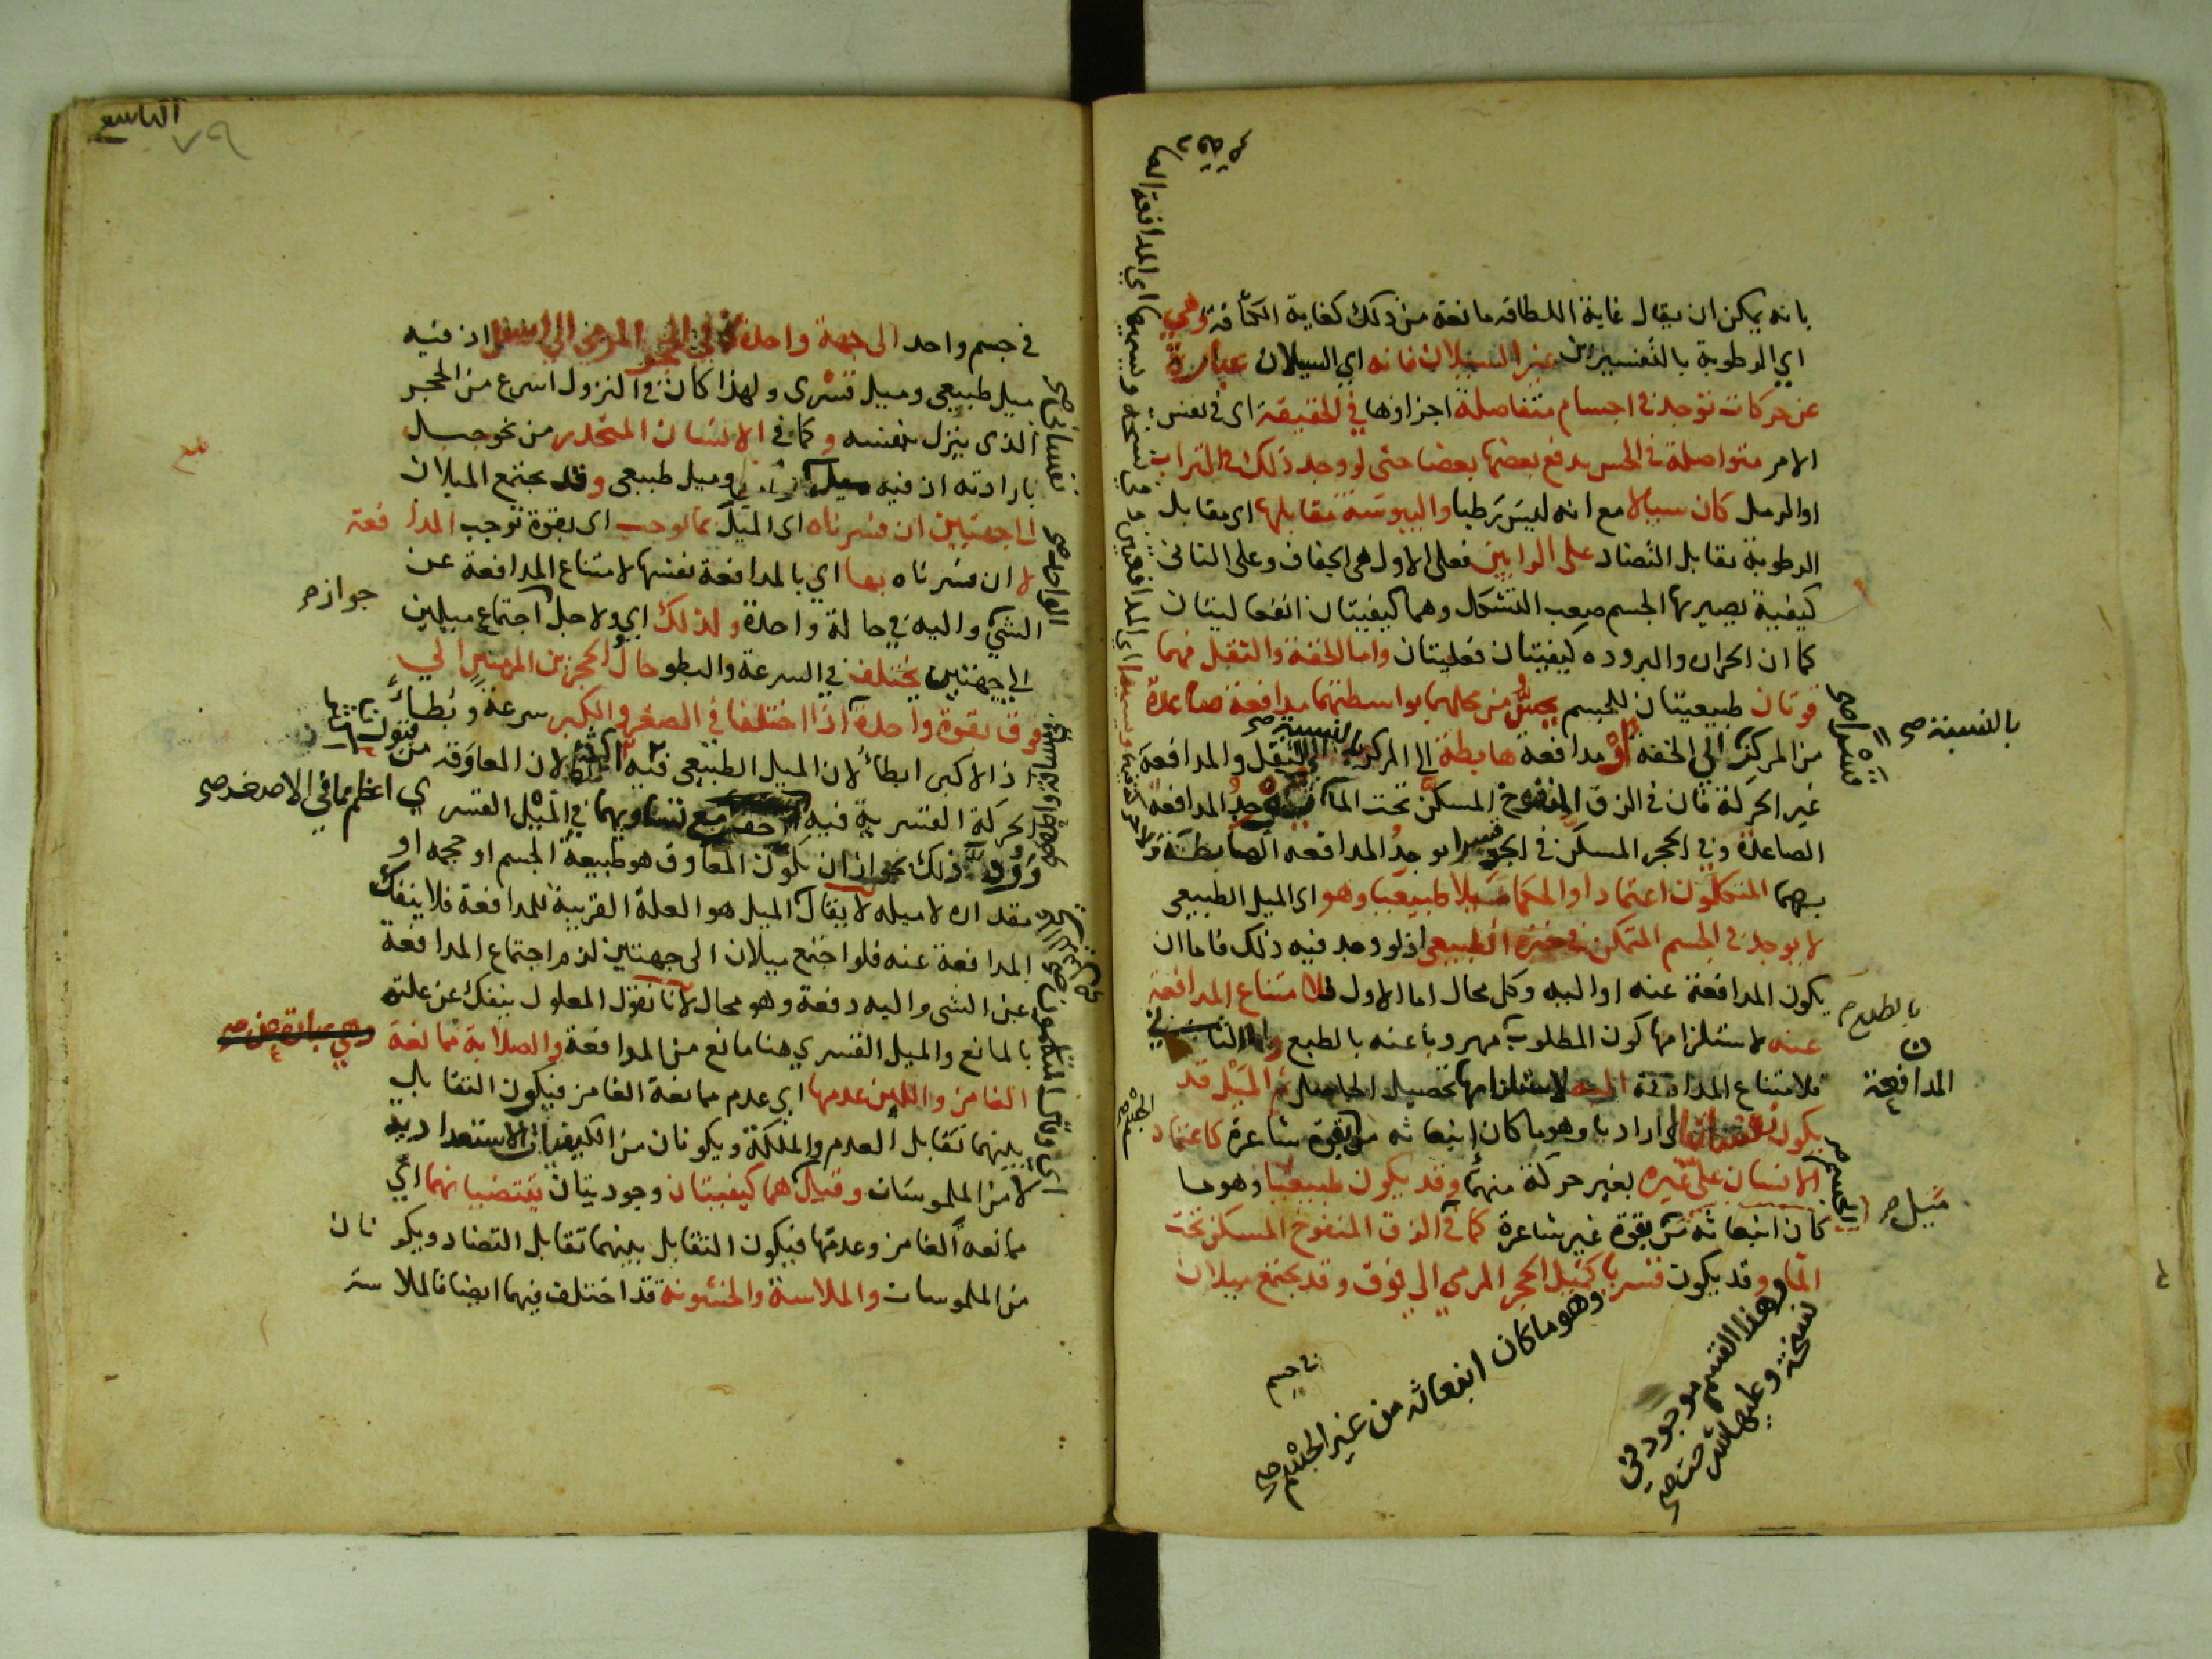 بانه يمكن ان يقال غاية اللطافة مانعة من ذلك كغاية الكثافة وهي
اي الرطوبة بالتفسيرين غير السيلان فانه اي السيلان عبارة
عن حركات توجد في اجسام متفاصلة اجزاؤها في الحقيقة اى في نفس
الامر متواصلة في الحس يدفع بعضها بعضا حتى لو وجد ذلك في التراب
او الرمل كان سيالا مع انه ليس برطبا واليبوسة مقابلها اى مقابل
الرطوبة تقابل التضاد على الرايين فعلى الاول هى الجفاف وعلى الثانى
كيفية يصير بها الجسم صعب التشكل وهما كيفيتان انفعاليتان
كما ان الحراره والبروده كيفيتان فعليتان واما الخفة والثقل فهما
قوتان طبيعيتان للجسم يحس من محلهما بواسطتهما مدافعة صاعدة
من المركز الي الخفه او مدافعة هابطة الي المركز الثقل والمدافعة
غير الحركة فان في الزق المنفوخ المسكن تحت الماء توجد المدافعة
الصاعدة وفي الحجر المسكن في الجو قسرا توجد المدافعه الهابطة
يسميهما المتكلمون اعتمادا والحكما ميلا طبيعيا وهو اى الميل الطبيعى
لا يوجد في الجسم المتمكن في حيزه الطبيعى اذ لو وجد فيه ذلك فاما ان
يكون المدافعة عنه او اليه وكل محال اما الاول فلامتناع المدافعة
عنه لاستلزامها كون المطلوب مهروبا عنه بالطبع واما الثانى
فلامتناع المدافعة اليه لاستلزامها تحصيل الحاصل ثم الميل قد
يكون نفسانيا اى اراديا وهو ما كان انبعاثه من قوة شاعرة كاعتماد
الانسان على غيره بغير حركة منهما وقد يكون طبيعيا وهو ما
كان انبعاثه من قوة غير شاعرة كما في الزق المنفوخ المسكن تحت
الماء وقد يكون قسريا كميل الحجر المرمى الي فوق وقد يجتمع ميلان
بالنسبة صح
بالطبع م
المدافعة
ميل م
وهو ما كان انبعاثه من غير الجسم صح
وهذا القسم موجود في
نسخة وعليها شرحت صح
في جسم
التاسع
٧٩
في جسم واحد الى جهة واحدة كما في الحجر المرمى الي اسفل اذ فيه
ميل طبيعى وميل قسرى ولهذا كان في النزول اسرع من الحجر
الذى ينزل بنفسه وكما في الانسان المنحدر من نحو جبل
بارادته اذ فيه ميل وميل طبيعى وقد يجتمع الميلان
الى جهتين ان فسرناه اى الميل بما يوجب اى بقوة توجب المدافعة
لا ان فسرناه بها اي بالمدافعة نفسها لامتناع المدافعة عن
الشي واليه في حالة واحدة ولذلك اي ولاجل اجتماع ميلين
الي جهتين يختلف في السرعة والبطو حال الحجرين المرميين الي
فوق بقوة واحدة اذا اختلفا في الصغر والكبر سرعة وبطاء
اذ الاكبر ابطأ لان الميل الطبيعى فيه اكثر لان المعاوقه من
الحركة القسرية فيه مع تساويهما في الميل القسري
ورد ذلك بجواز ان يكون المعاوق هو طبيعة الجسم او حجمه او
مقداره لا ميله لا يقال الميل هو العلة القريبة للمدافعة فلا ينفك
المدافعة عنه فلو اجتمع ميلان الى جهتين لزم اجتماع المدافعة
عن الشى واليه دفعة وهو محال لانا نقول المعلول ينفك عن علته
بالمانع والميل القسري هنا مانع من المدافعة والصلابة ممانعة
الغامز واللين عدمها اي عدم ممانعة الغامز فيكون التقابل
بينهما تقابل العدم والملكة ويكونان من الكيفيات الاستعدادية
لا من الملموسات وقيل هما كيفيتان وجوديتان يقتضيانهما اي
ممانعه الغامز وعدمها فيكون التقابل بينهما تقابل التضاد ويكونان
من الملموسات والملاسة والخشونة قد اختلف فيهما ايضا فالملاسة
جواز م
اعظم مما في الاصغر صح
وهي عبارة عن صح